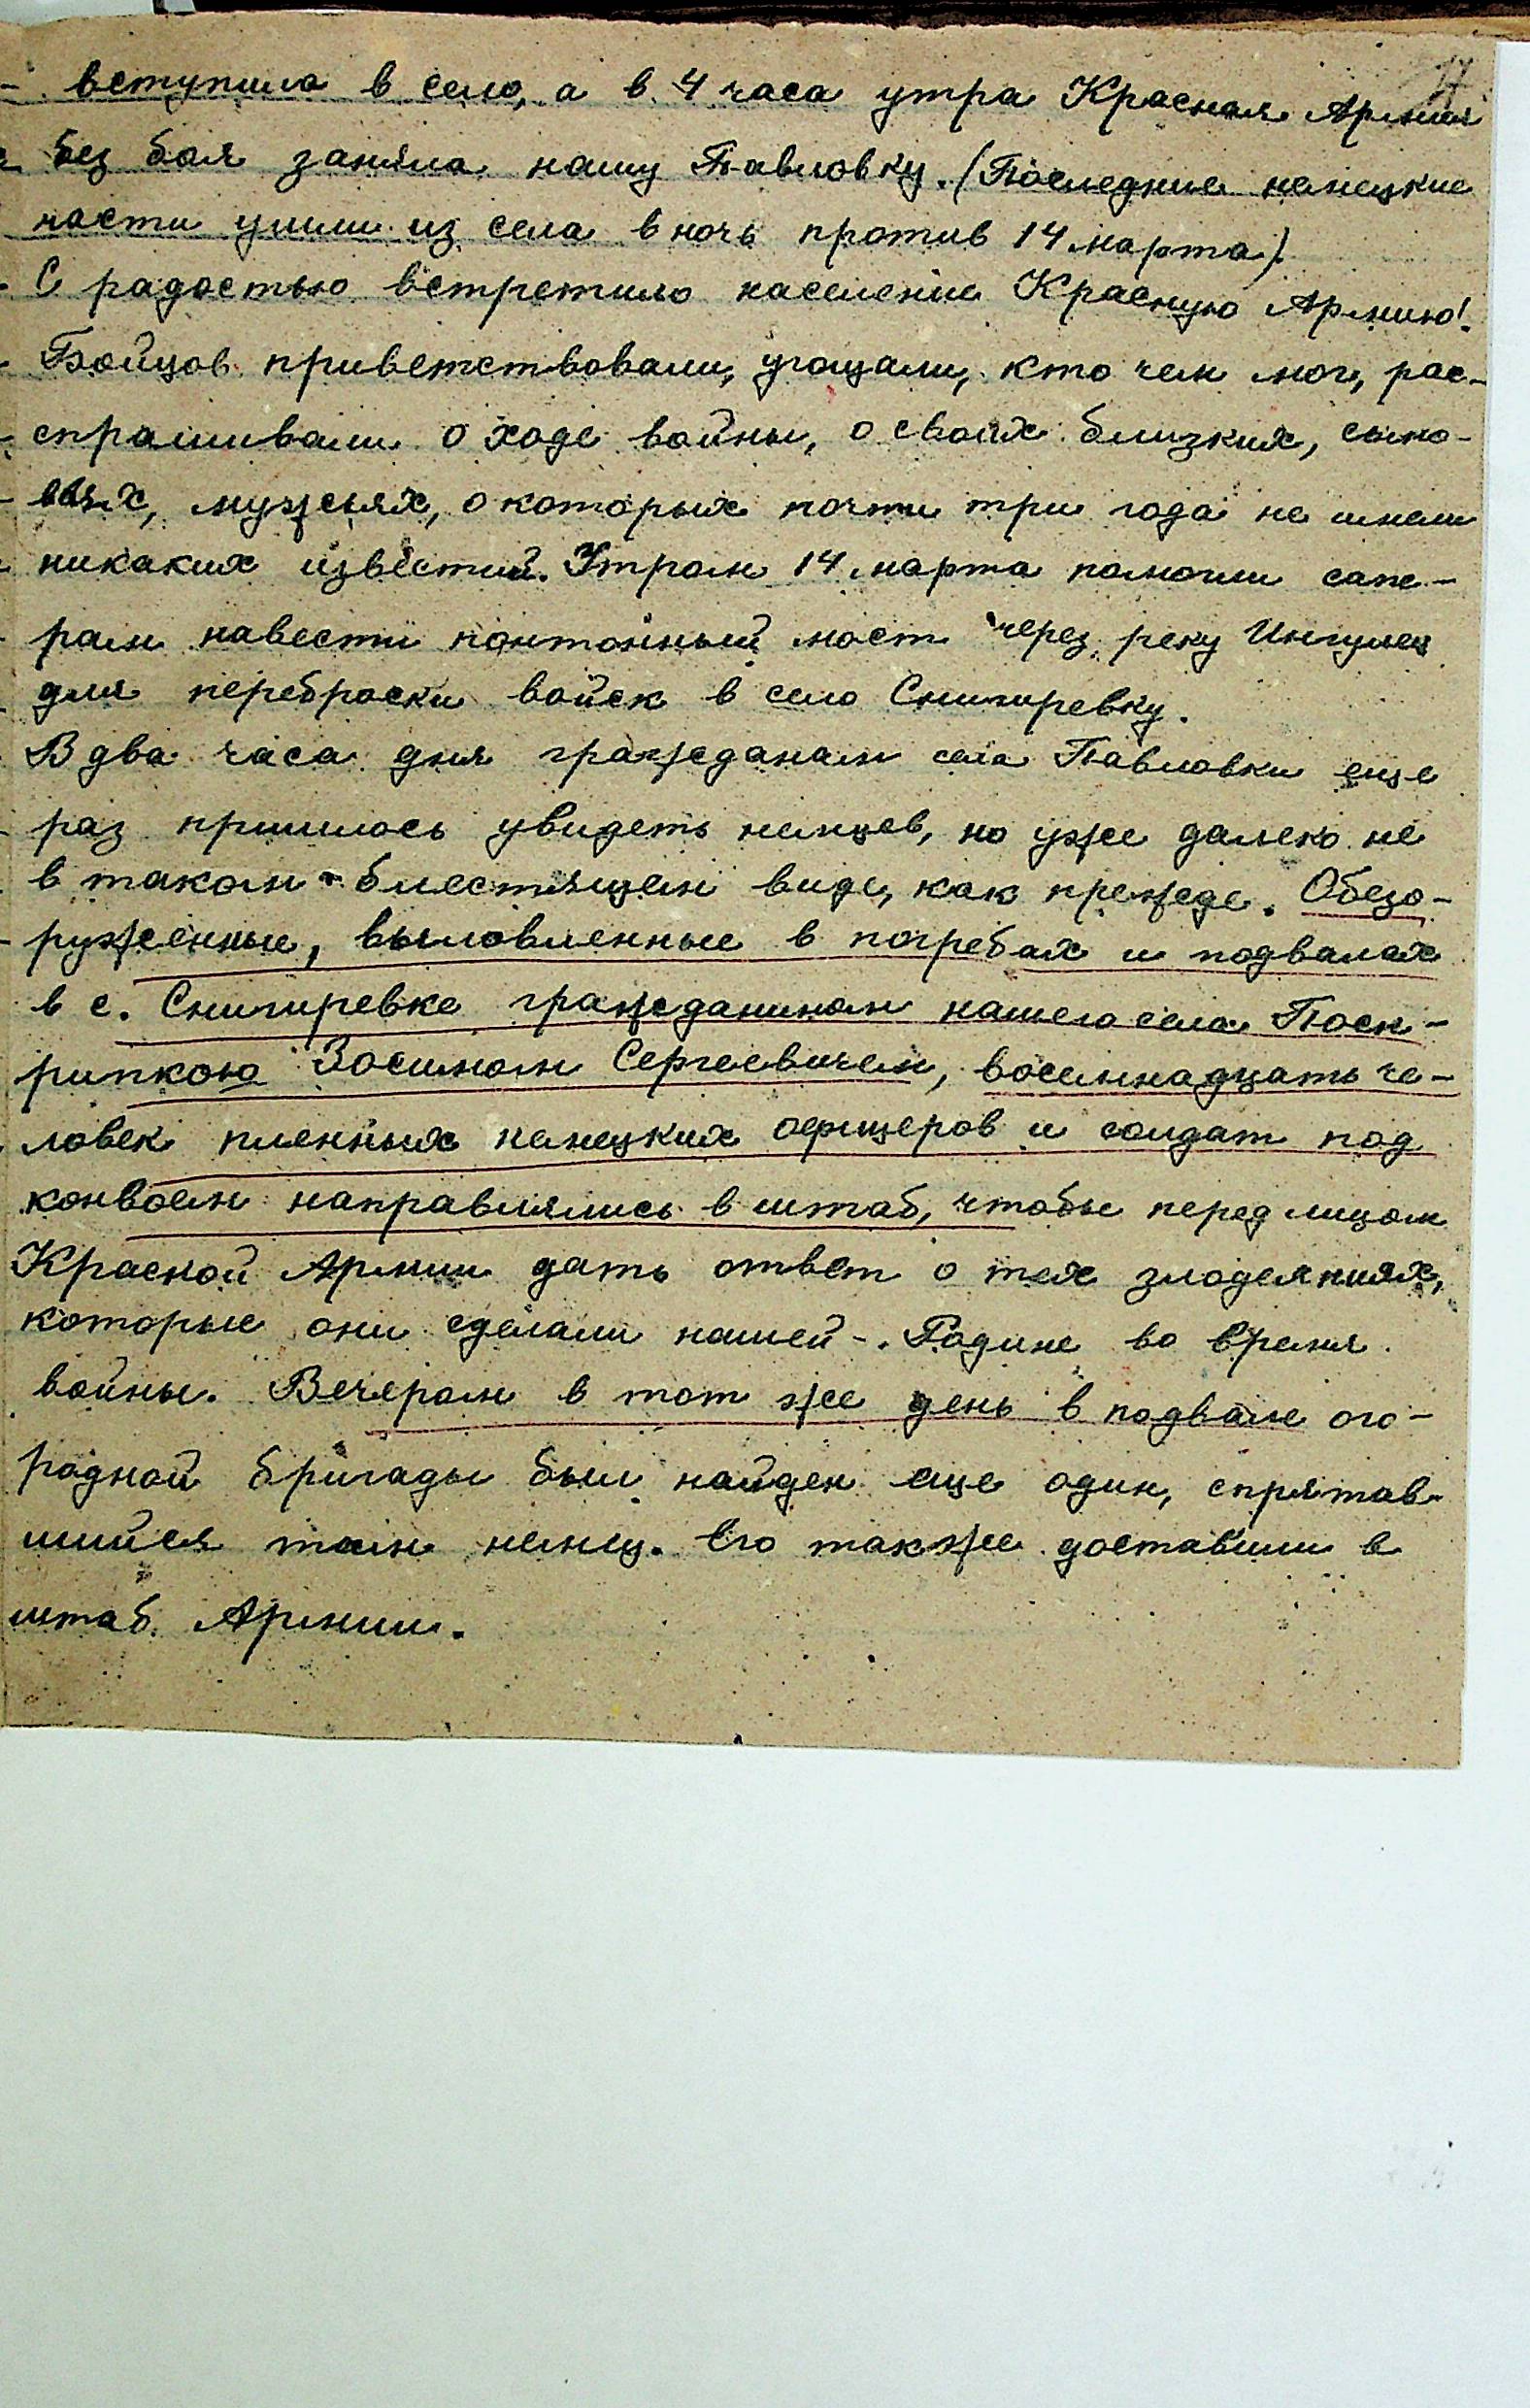 17
вступила в село, а в 4 часа утра Красная Армия
без боя заняла нашу Павловку. (Последние немецкие
части ушли из села в ночь против 14 марта).
С радостью встретило население Красную Армию!
Бойцов приветствовали, угощали, кто чем мог, рас-
спрашивали о ходе войны, о своих близких, сыно-
вьях, мужьях, о которых почти три года не имели
никаких известий. Утром 14 марта помогли сапе-
рам навести понтонный мост через реку Ингулец
для переброски войск в село Снигиревку.
В два часа дня гражданам села Павловки еще
раз пришлось увидеть немцев, но уже далеко не
в таком блестящем виде, как прежде. Обезо-
руженные, выловленные в погребах и подвалах
в с. Снигиревке гражданином нашего села Поск-
рипкою Зосимом Сергеевичем, восемнадцать че-
ловек пленных немецких офицеров и солдат под
конвоем направлялись в штаб, чтобы перед лицом
Красной Армии дать ответ о тех злодеяниях,
которые они сделали нашей -. Родине во время
войны. Вечером в тот же день в подвале ого-
родной бригады был найден еще один, спрятав-
шийся там немец. Его также доставили в
штаб Армии.